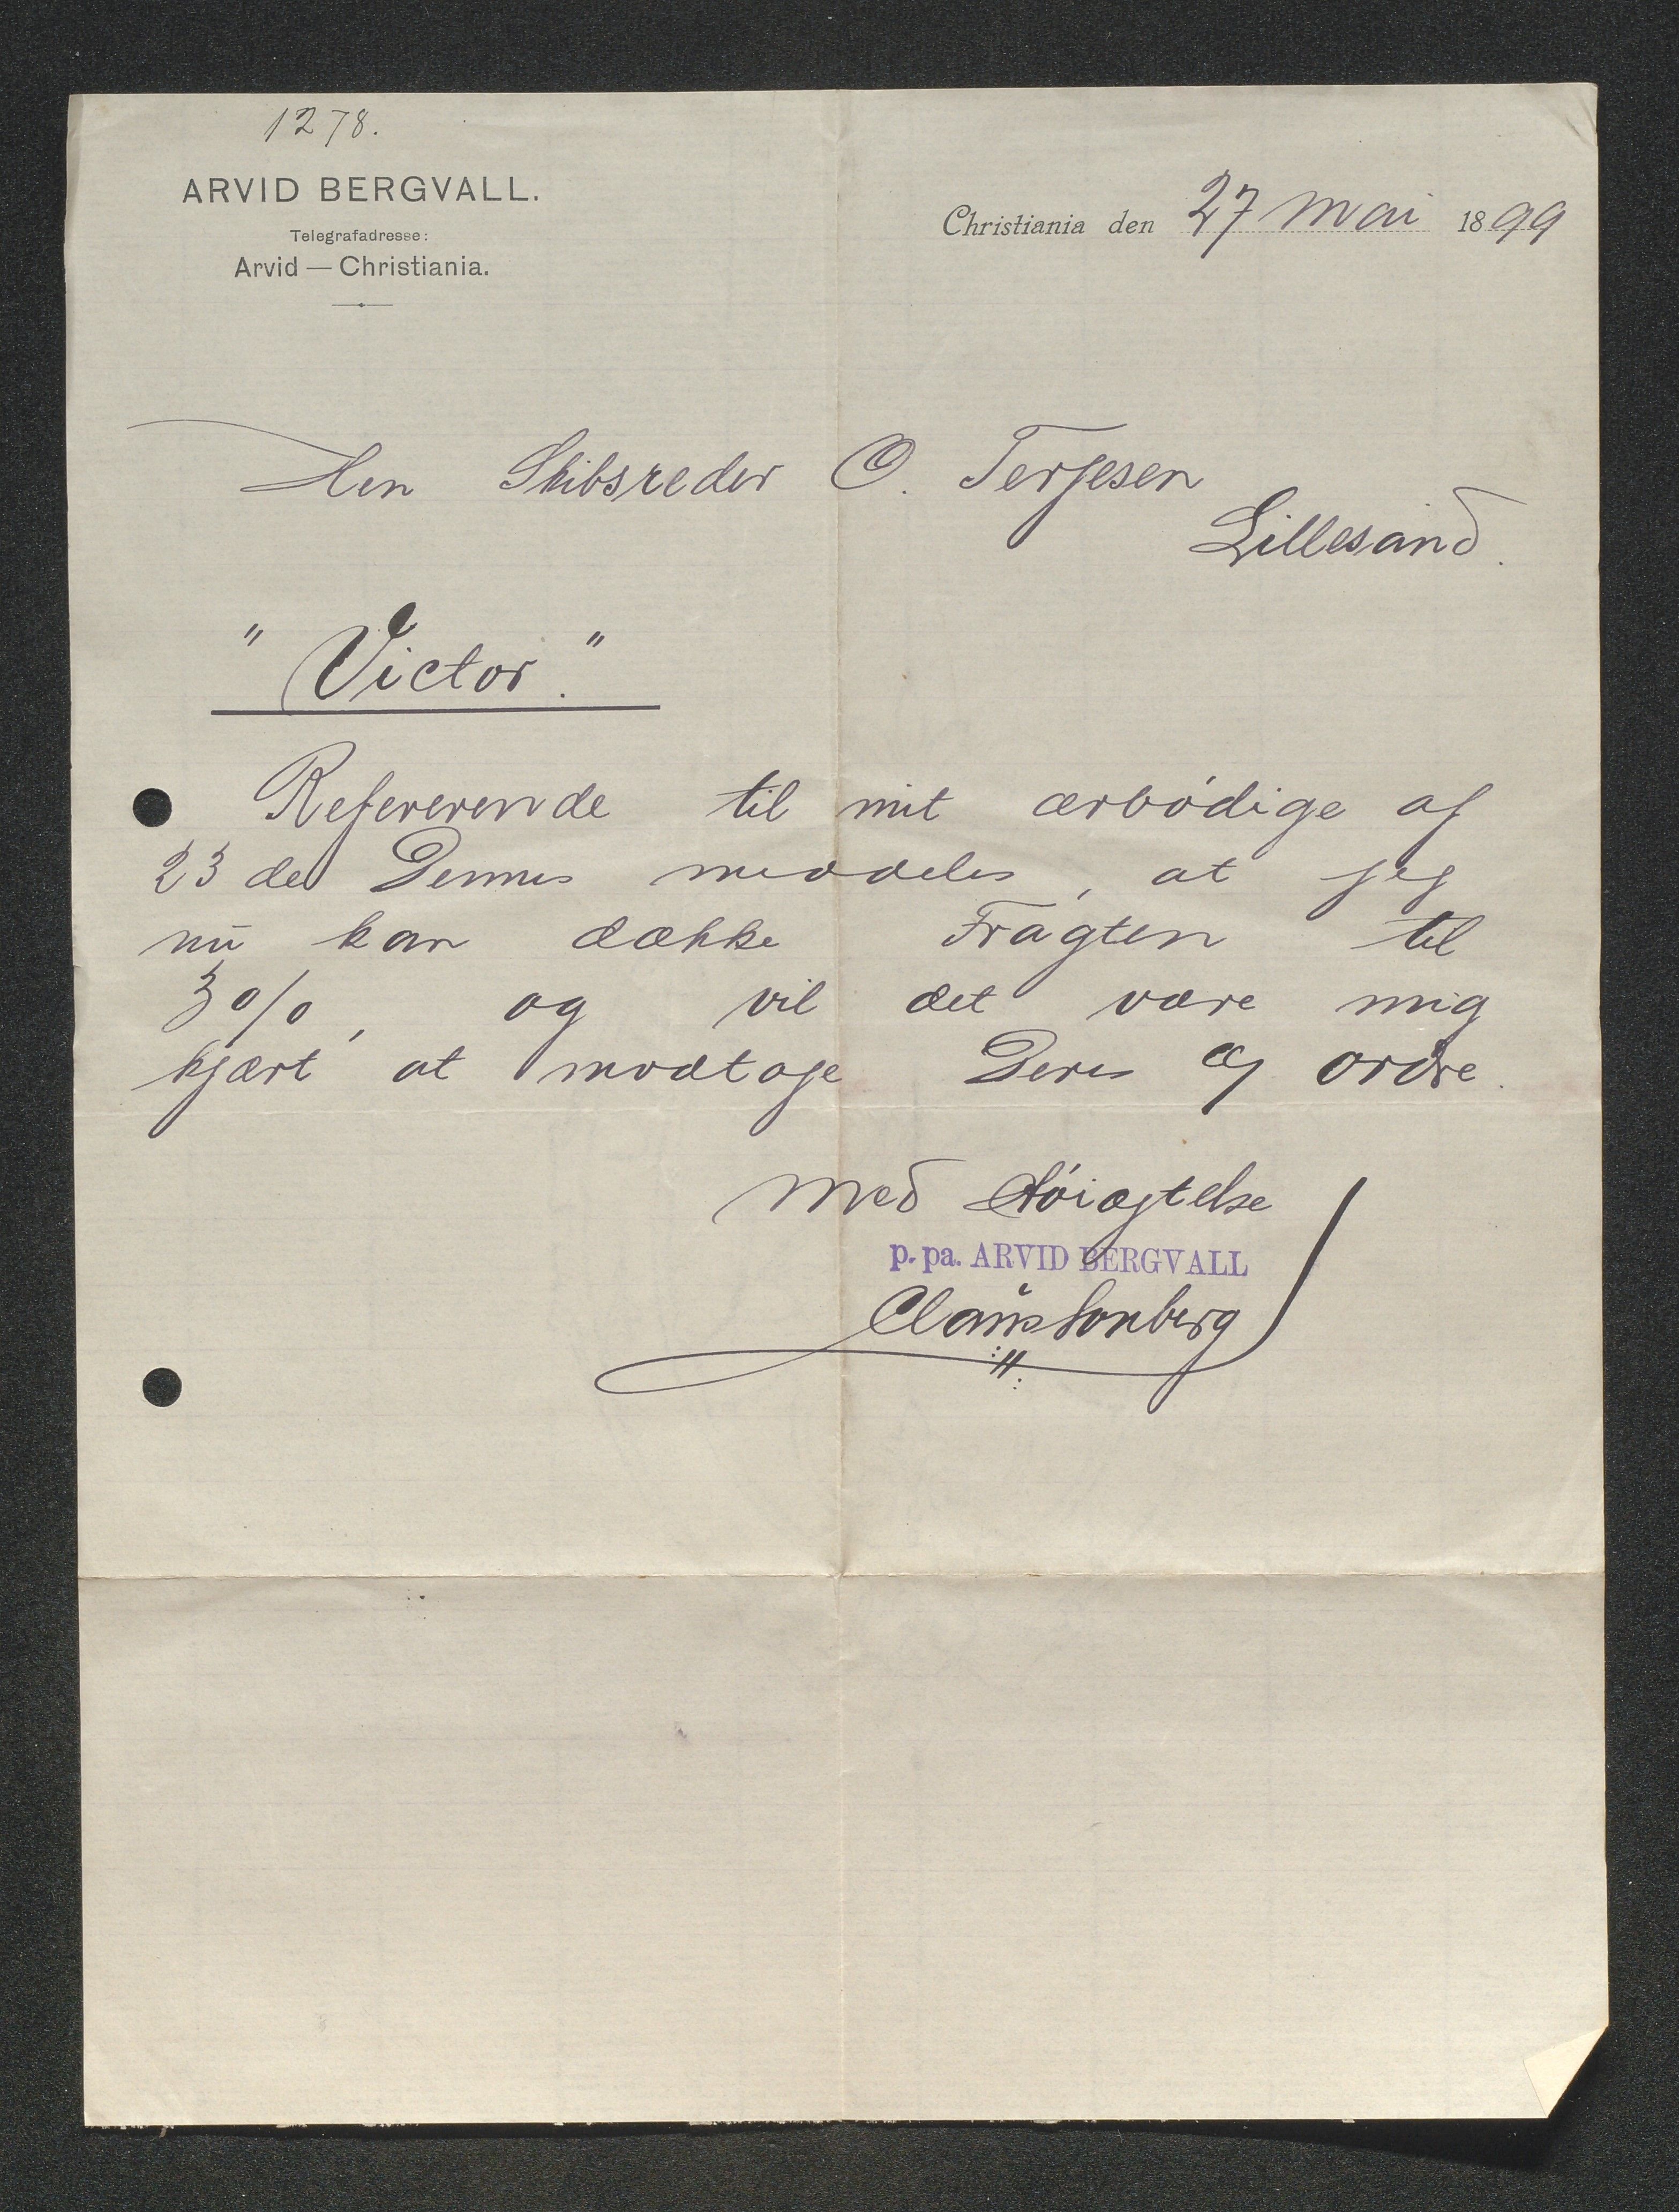 1278.
ARVID BERGVALL.
Telegrafadresse:
Arvid — Christiania.
Christiania den 27 Mai 1899
Herr Skibsreder O. Terjesen
Lillesand.
"Victor."
Refererende til mit ærbödige af
23 de Dennes meddeles, at jeg
nu kan dække Fragten til
3%, og vil det være mig
kjært at modtage Deres Og ordre.
Med Höiagtelse
p. pa. ARVID BERGVALL